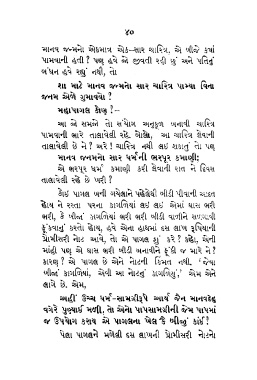 ૪૦
માનવ જન્મનો એકમાત્ર એક-સાર ચારિત્ર, એ બીજે ક્યાં
પામવાની હતી ? પણ હવે એ જીવતી રહી છું અને પતિનું
બંધન હવે રહ્યું નથી, તો
શા માટે માનવ જન્મનો સાર ચારિત્ર પામ્યા વિના
જનમ એળે ગુમાવવો ?
મહાપાગલ કોણ ?–
આ જો સમજો તો સંયોગ અનુકૂળ બનાવી ચારિત્ર
પામવાની ભારે તાલાવેલી રહે. બોલો, આ ચારિત્ર લેવાની
તાલાવેલી છે ને ? અરે ! ચારિત્ર નથી લઈ શકાતું તો પણ
માનવ જનમનો સાર ધર્મની ભરપૂર કમાણી;
એ ભરપૂર ધર્મ કમાણી કરી લેવાની રાત ને દિવસ
તાલાવેલી રહે છે ખરી ?
કોઈ પાગલ બની ગયેલાને પહેલેથી બીડી પીવાની આદત
હોય ને રસ્તા પરના કાગળિયાં લઈ લઈ એમાં ઘાસ ભરી
ભરી, કે બીજાં કાગળિયાં ભરી ભરી બીડી વાળીને સળગાવી
ફૂંકવાનું કરતો હોય, હવે એના હાથમાં દસ લાખ રૂપિયાની
પ્રોમીસરી નોટ આવે, તો એ પાગલ શું કરે ? કહો, એની
માંહી પણ એ ઘાસ ભરી બીડી બનાવીને ફૂંકી જ મારે ને ?
કારણ ? એ પાગલ છે એને નોટની કિંમત નથી. 'જેવા
બીજાં કાગળિયાં, એવી આ નોટનું કાગળિયું,' એમ એને
લાગે છે, એમ,
અહીં ઉચ્ચ ધર્મ-સામગ્રીરૂપે આર્ય જૈન માનવદેહ
વગેરે પુણ્યાઈ મળી, તો એનો પાપસામગ્રીની જેમ પાપમાં
જ ઉપયોગ કરાય એ પાગલના ખેલ કે બીજું કાંઈ ?
પેલા પાગલને મળેલી દસ લાખની પ્રોમીસરી નોટનો